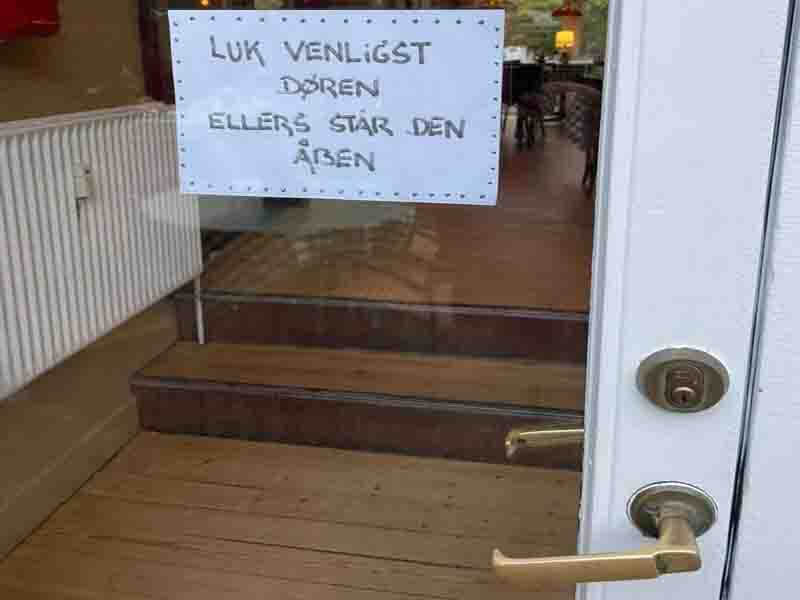 LUK VENLIGST
DØREN
ELLERS STÅR DEN
ÅBEN